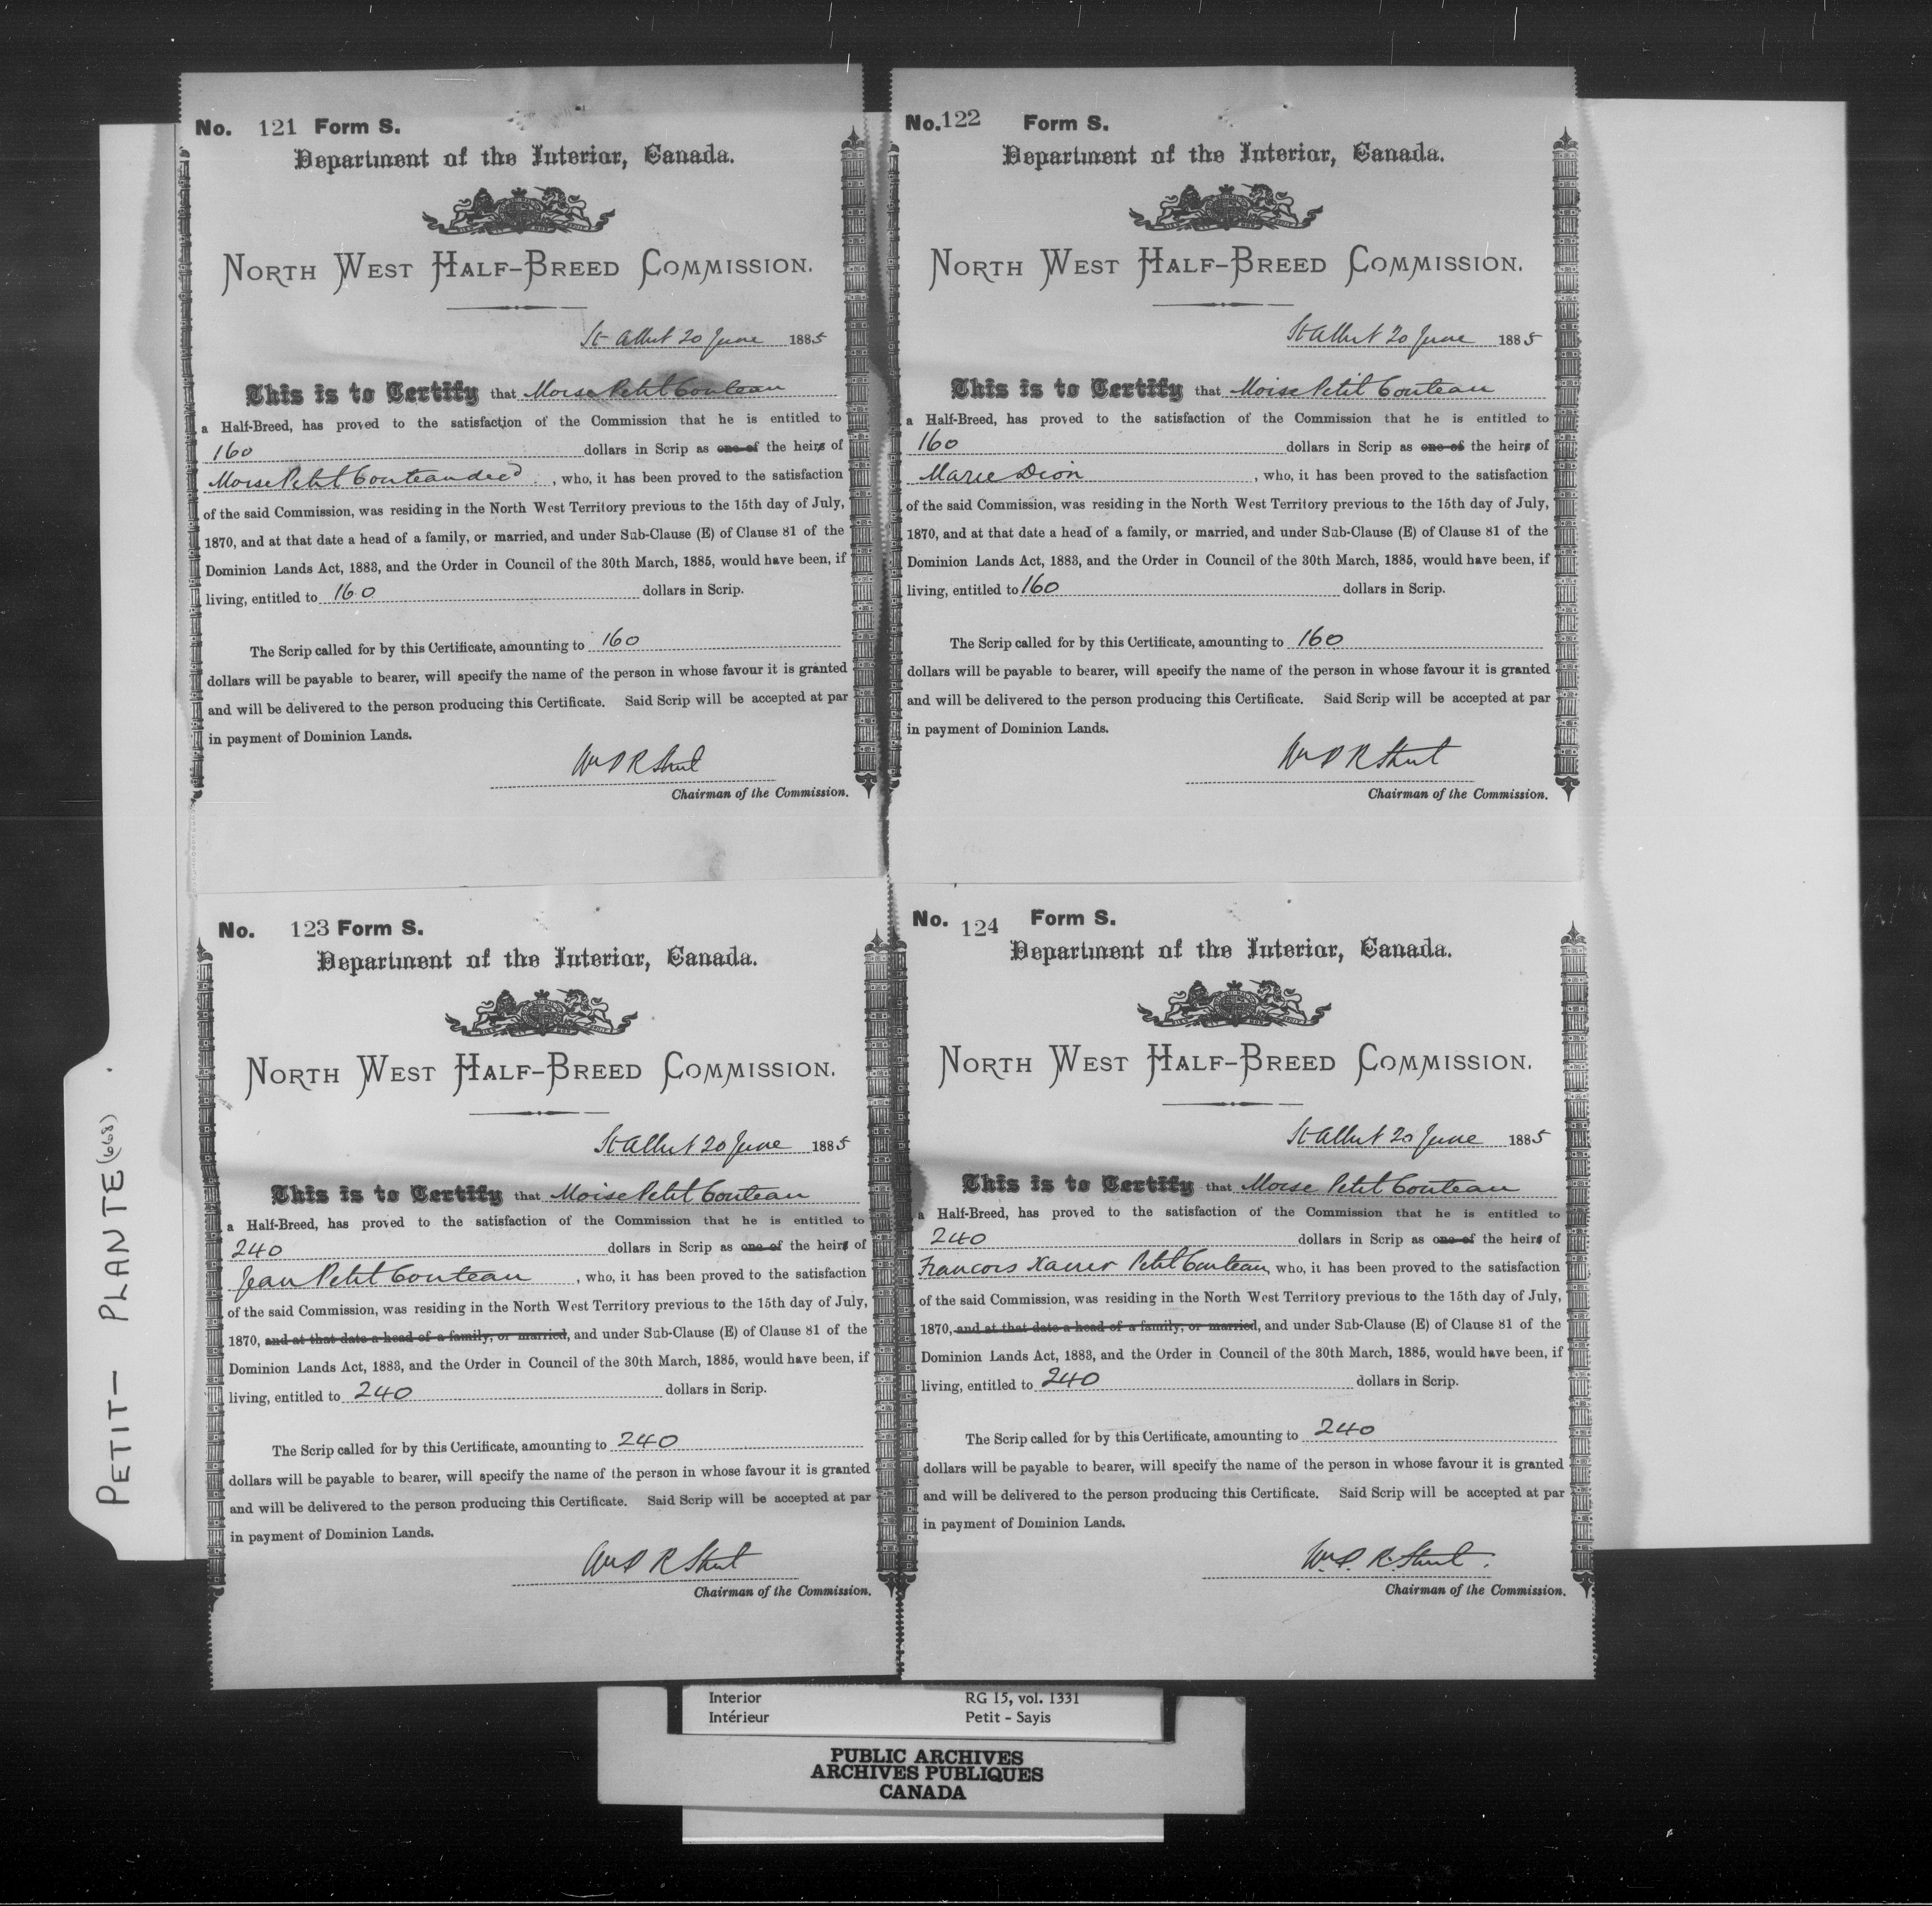 No. 121 Form S.
Department of the Interior, Canada.
North West Half-Breed Commission.
St Albert 20 June 1885
This is to Certify that Moise Petit Couteau
a Half-Breed, has proved to the satisfaction of the Commission that he is entitled to
160 dollars in Scrip as one of the heirs of
Moise Petit Couteau decd, who, it has been proved to the satisfaction
of the said Commission, was residing in the North West Territory previous to the 15th day of July,
1870, and at that date a head of a family, or married, and under Sub-Clause (E) of Clause 81 of the
Dominion Lands Act, 1883, and the Order in Council of the 30th March, 1885, would have been, if
living, entitled to 160 dollars in Scrip.
The Scrip called for by this Certificate, amounting to 160
dollars will be payable to bearer, will specify the name of the person in whose favour it is granted
and will be delivered to the person producing this Certificate. Said Scrip will be accepted at par
in payment of Dominion Lands.
Wm P R Street
Chairman of the Commission.
No. 122 Form S.
Department of the Interior, Canada.
North West Half-Breed Commission.
St Albert 20 June 1885
This is to Certify that Moise Petit Couteau
a Half-Breed, has proved to the satisfaction of the Commission that he is entitled to
160 dollars in Scrip as one of the heirs of
Marie Dion, who, it has been proved to the satisfaction
of the said Commission, was residing in the North West Territory previous to the 15th day of July,
1870, and at that date a head of a family, or married, and under Sub-Clause (E) of Clause 81 of the
Dominion Lands Act, 1883, and the Order in Council of the 30th March, 1885, would have been, if
living, entitled to 160 dollars in Scrip.
The Scrip called for by this Certificate, amounting to 160
dollars will be payable to bearer, will specify the name of the person in whose favour it is granted
and will be delivered to the person producing this Certificate. Said Scrip will be accepted at par
in payment of Dominion Lands.
Wm P R Street
Chairman of the Commission.
No. 123 Form S.
Department of the Interior, Canada.
North West Half-Breed Commission.
St Albert 20 June 1885
This is to Certify that Moise Petit Couteau
a Half-Breed, has proved to the satisfaction of the Commission that he is entitled to
240 dollars in Scrip as one of the heirs of
Jean Petit Couteau, who, it has been proved to the satisfaction
of the said Commission, was residing in the North West Territory previous to the 15th day of July,
1870, and at that date a head of a family, or married, and under Sub-Clause (E) of Clause 81 of the
Dominion Lands Act, 1883, and the Order in Council of the 30th March, 1885, would have been, if
living, entitled to 240 dollars in Scrip.
The Scrip called for by this Certificate, amounting to 240
dollars will be payable to bearer, will specify the name of the person in whose favour it is granted
and will be delivered to the person producing this Certificate. Said Scrip will be accepted at par
in payment of Dominion Lands.
Wm P R Street
Chairman of the Commission.
No. 124 Form S.
Department of the Interior, Canada.
North West Half-Breed Commission.
St Albert 20 June 1885
This is to Certify that Moise Petit Couteau
a Half-Breed, has proved to the satisfaction of the Commission that he is entitled to
240 dollars in Scrip as one of the heirs of
Francois Xavier Petit Couteau, who, it has been proved to the satisfaction
of the said Commission, was residing in the North West Territory previous to the 15th day of July,
1870, and at that date a head of a family, or married, and under Sub-Clause (E) of Clause 81 of the
Dominion Lands Act, 1883, and the Order in Council of the 30th March, 1885, would have been, if
living, entitled to 240 dollars in Scrip.
The Scrip called for by this Certificate, amounting to 240
dollars will be payable to bearer, will specify the name of the person in whose favour it is granted
and will be delivered to the person producing this Certificate. Said Scrip will be accepted at par
in payment of Dominion Lands.
Wm. P. R. Street.
Chairman of the Commission.
PETIT - PLANTE (668).
Interior RG 15, vol. 1331
Intérieur Petit - Sayis
PUBLIC ARCHIVES
ARCHIVES PUBLIQUES
CANADA